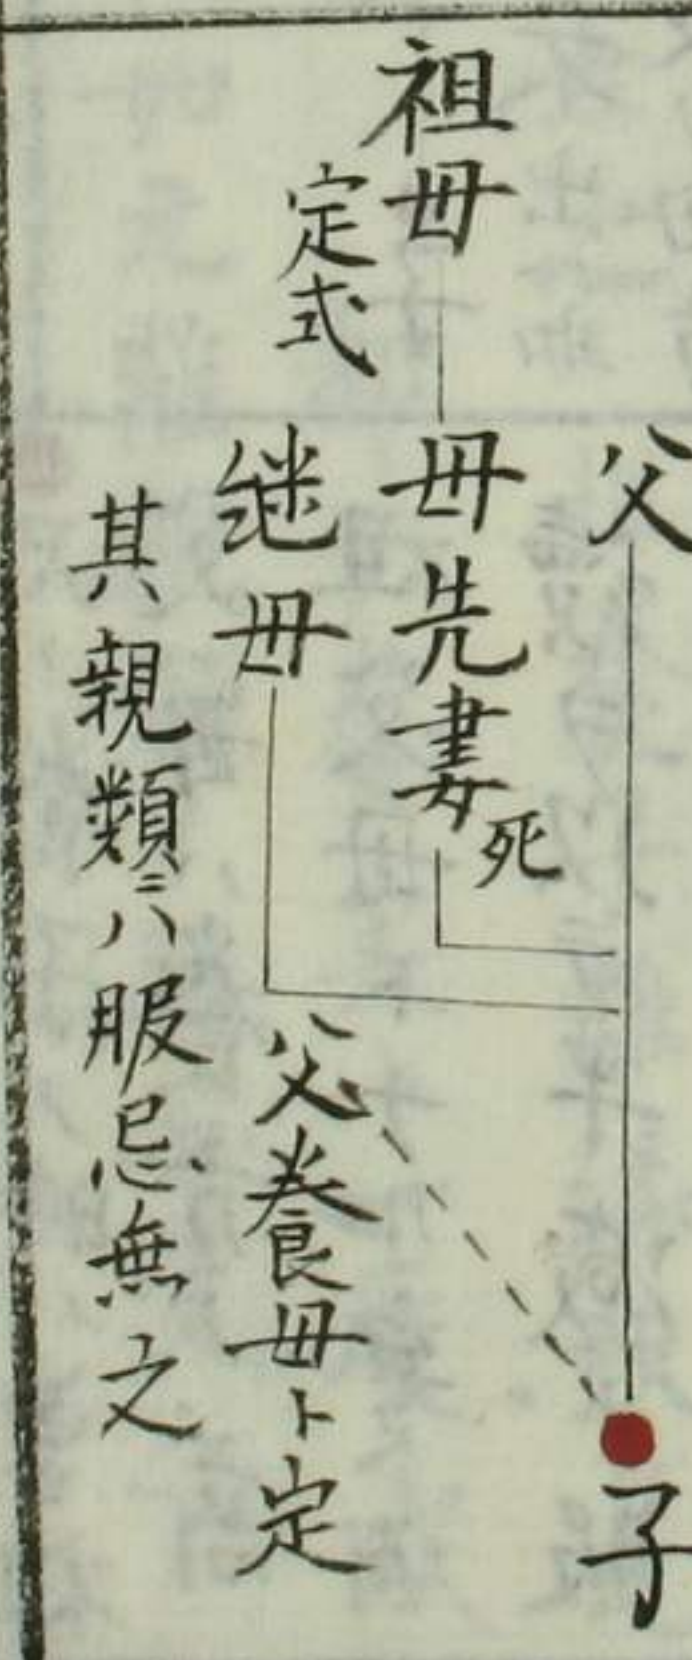 父
子
祖母
定式
母先妻死
継母
父養母ト定
其親類ニハ服忌無之